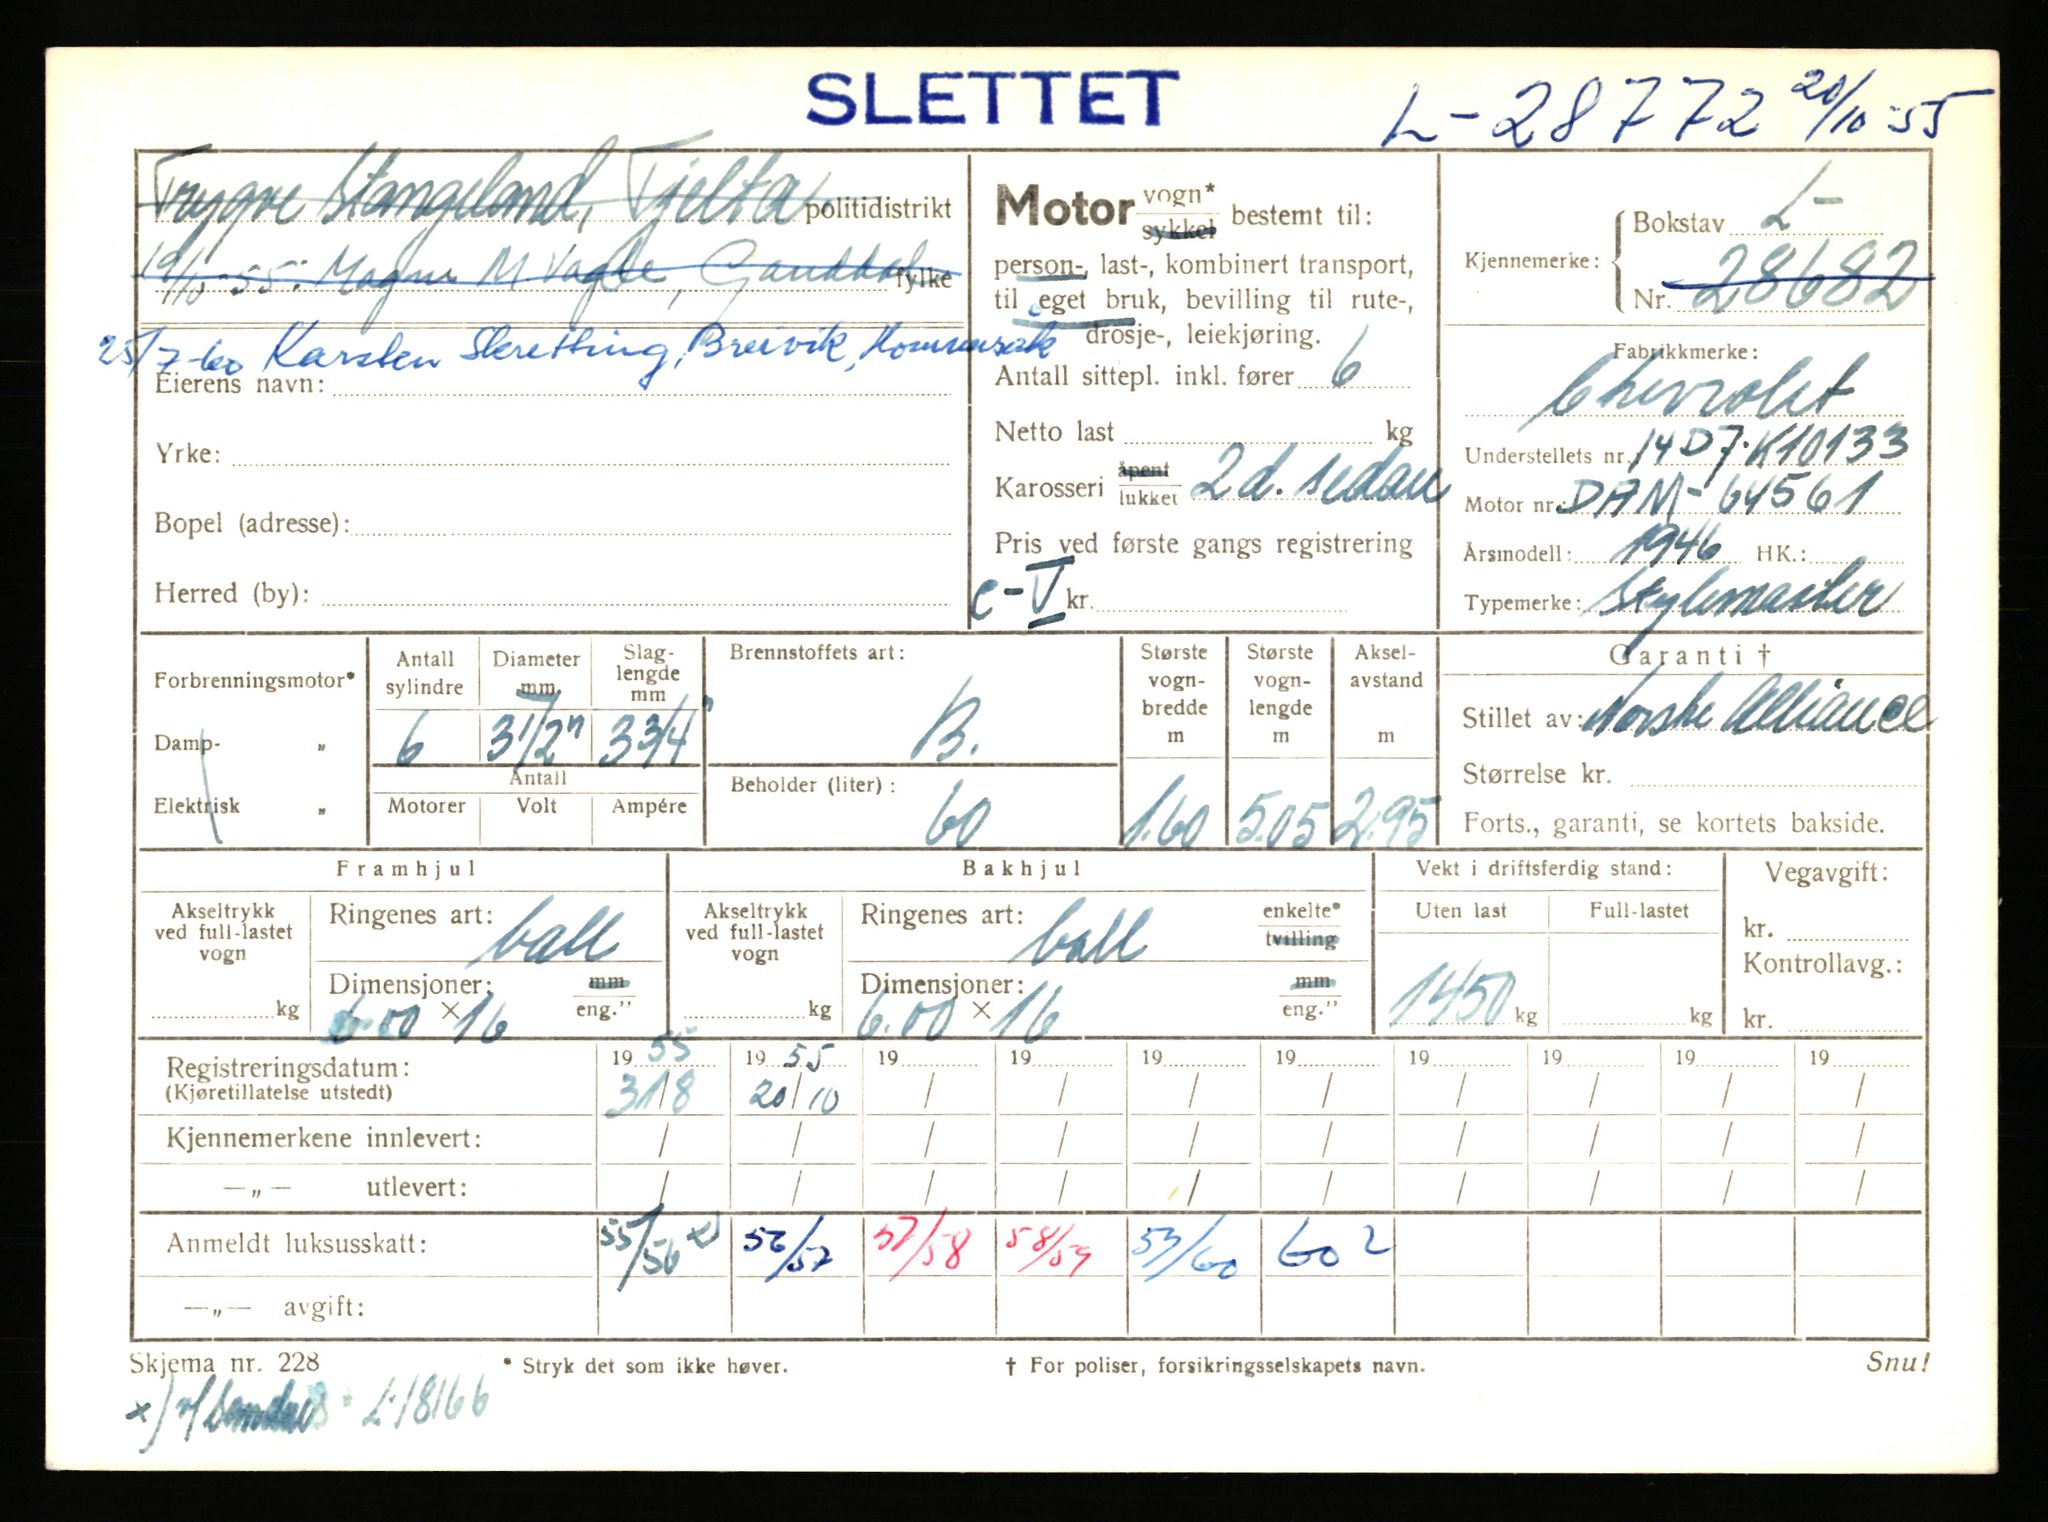 SLETTET
L-28772 20/10-55
Trygve Stangeland, Tjelta politidistrikt
19/10-55: Magne M Vagle, Ganddal fylke
25/7-60 Karsten Skretting, Breivik, Hommersåk
Eierens navn:
Yrke:
Bopel (adresse):
Herred (by):
Motor vogn* sykkel bestemt til:
person-, last-, kombinert transport,
til eget bruk, bevilling til rute-,
drosje-, leiekjøring.
Antall sittepl. inkl. fører 6
Netto last kg
Karosseri åpent lukket 2 d. sedan
Pris ved første gangs registrering
c-V kr.
Kjennemerke: Bokstav L-
Nr. 28682
Fabrikkmerke:
Chevrolet
Understellets nr.: 14D7-K10133
Motor nr.: DAM-64561
Årsmodell: 1946 HK.:
Typemerke: Stylemaster
Forbrenningsmotor*
Damp- „
Elektrisk „
Antall sylindre
6
Diameter mm
3 1/2"
Slag-lengde mm
3 3/4"
Antall
Motorer Volt Ampére
Brennstoffets art:
B.
Beholder (liter):
60
Største vogn-bredde m
1.60
Største vogn-lengde m
5.05
Aksel-avstand m
2.95
Garanti †
Stillet av: Norske Alliance
Størrelse kr.
Forts., garanti, se kortets bakside.
Framhjul
Akseltrykk ved full-lastet vogn
kg
Ringenes art: ball
Dimensjoner: mm
6.00 × 16 eng."
Bakhjul
Akseltrykk ved full-lastet vogn
kg
Ringenes art: ball enkelte* tvilling
Dimensjoner: mm
6.00 × 16 eng."
Vekt i driftsferdig stand:
Uten last Full-lastet
1450 kg kg
Vegavgift:
kr.
Kontrollavg.:
kr.
Registreringsdatum: 19 55 19 55 19 19 19 19 19 19 19 19
(Kjøretillatelse utstedt) 31/8 20/10 / / / / / / / /
Kjennemerkene innlevert: / / / / / / / / / /
—„— utlevert: / / / / / / / / / /
Anmeldt luksusskatt: 55/56 x) 56/57 57/58 58/59 59/60 60 2
—„— avgift:
Skjema nr. 228 * Stryk det som ikke høver. † For poliser, forsikringsselskapets navn. Snu!
x) L-18166